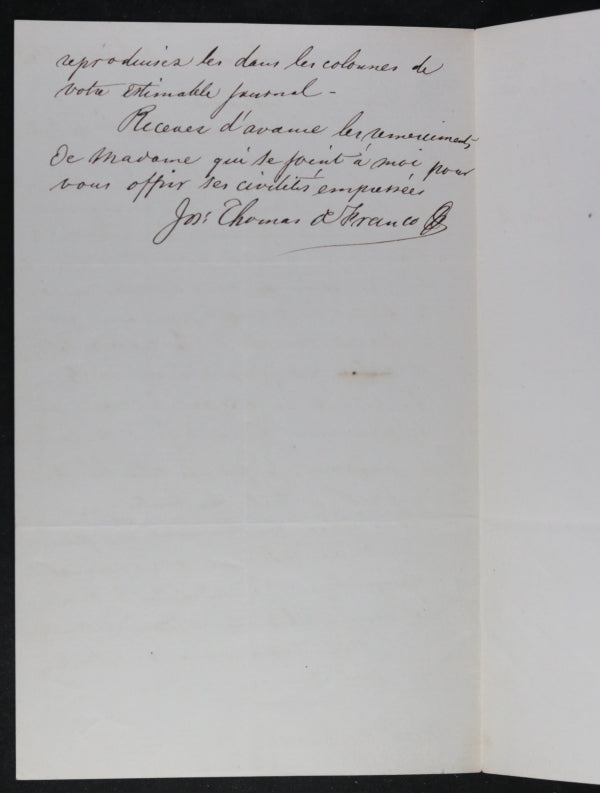 reproduisez les dans les colonnes de
votre estimable journal -
Recevez d'avance les remerciments
de Madame qui se joint à moi pour
vous offrir ses civilités empressées
Jos: Thomas de Franco